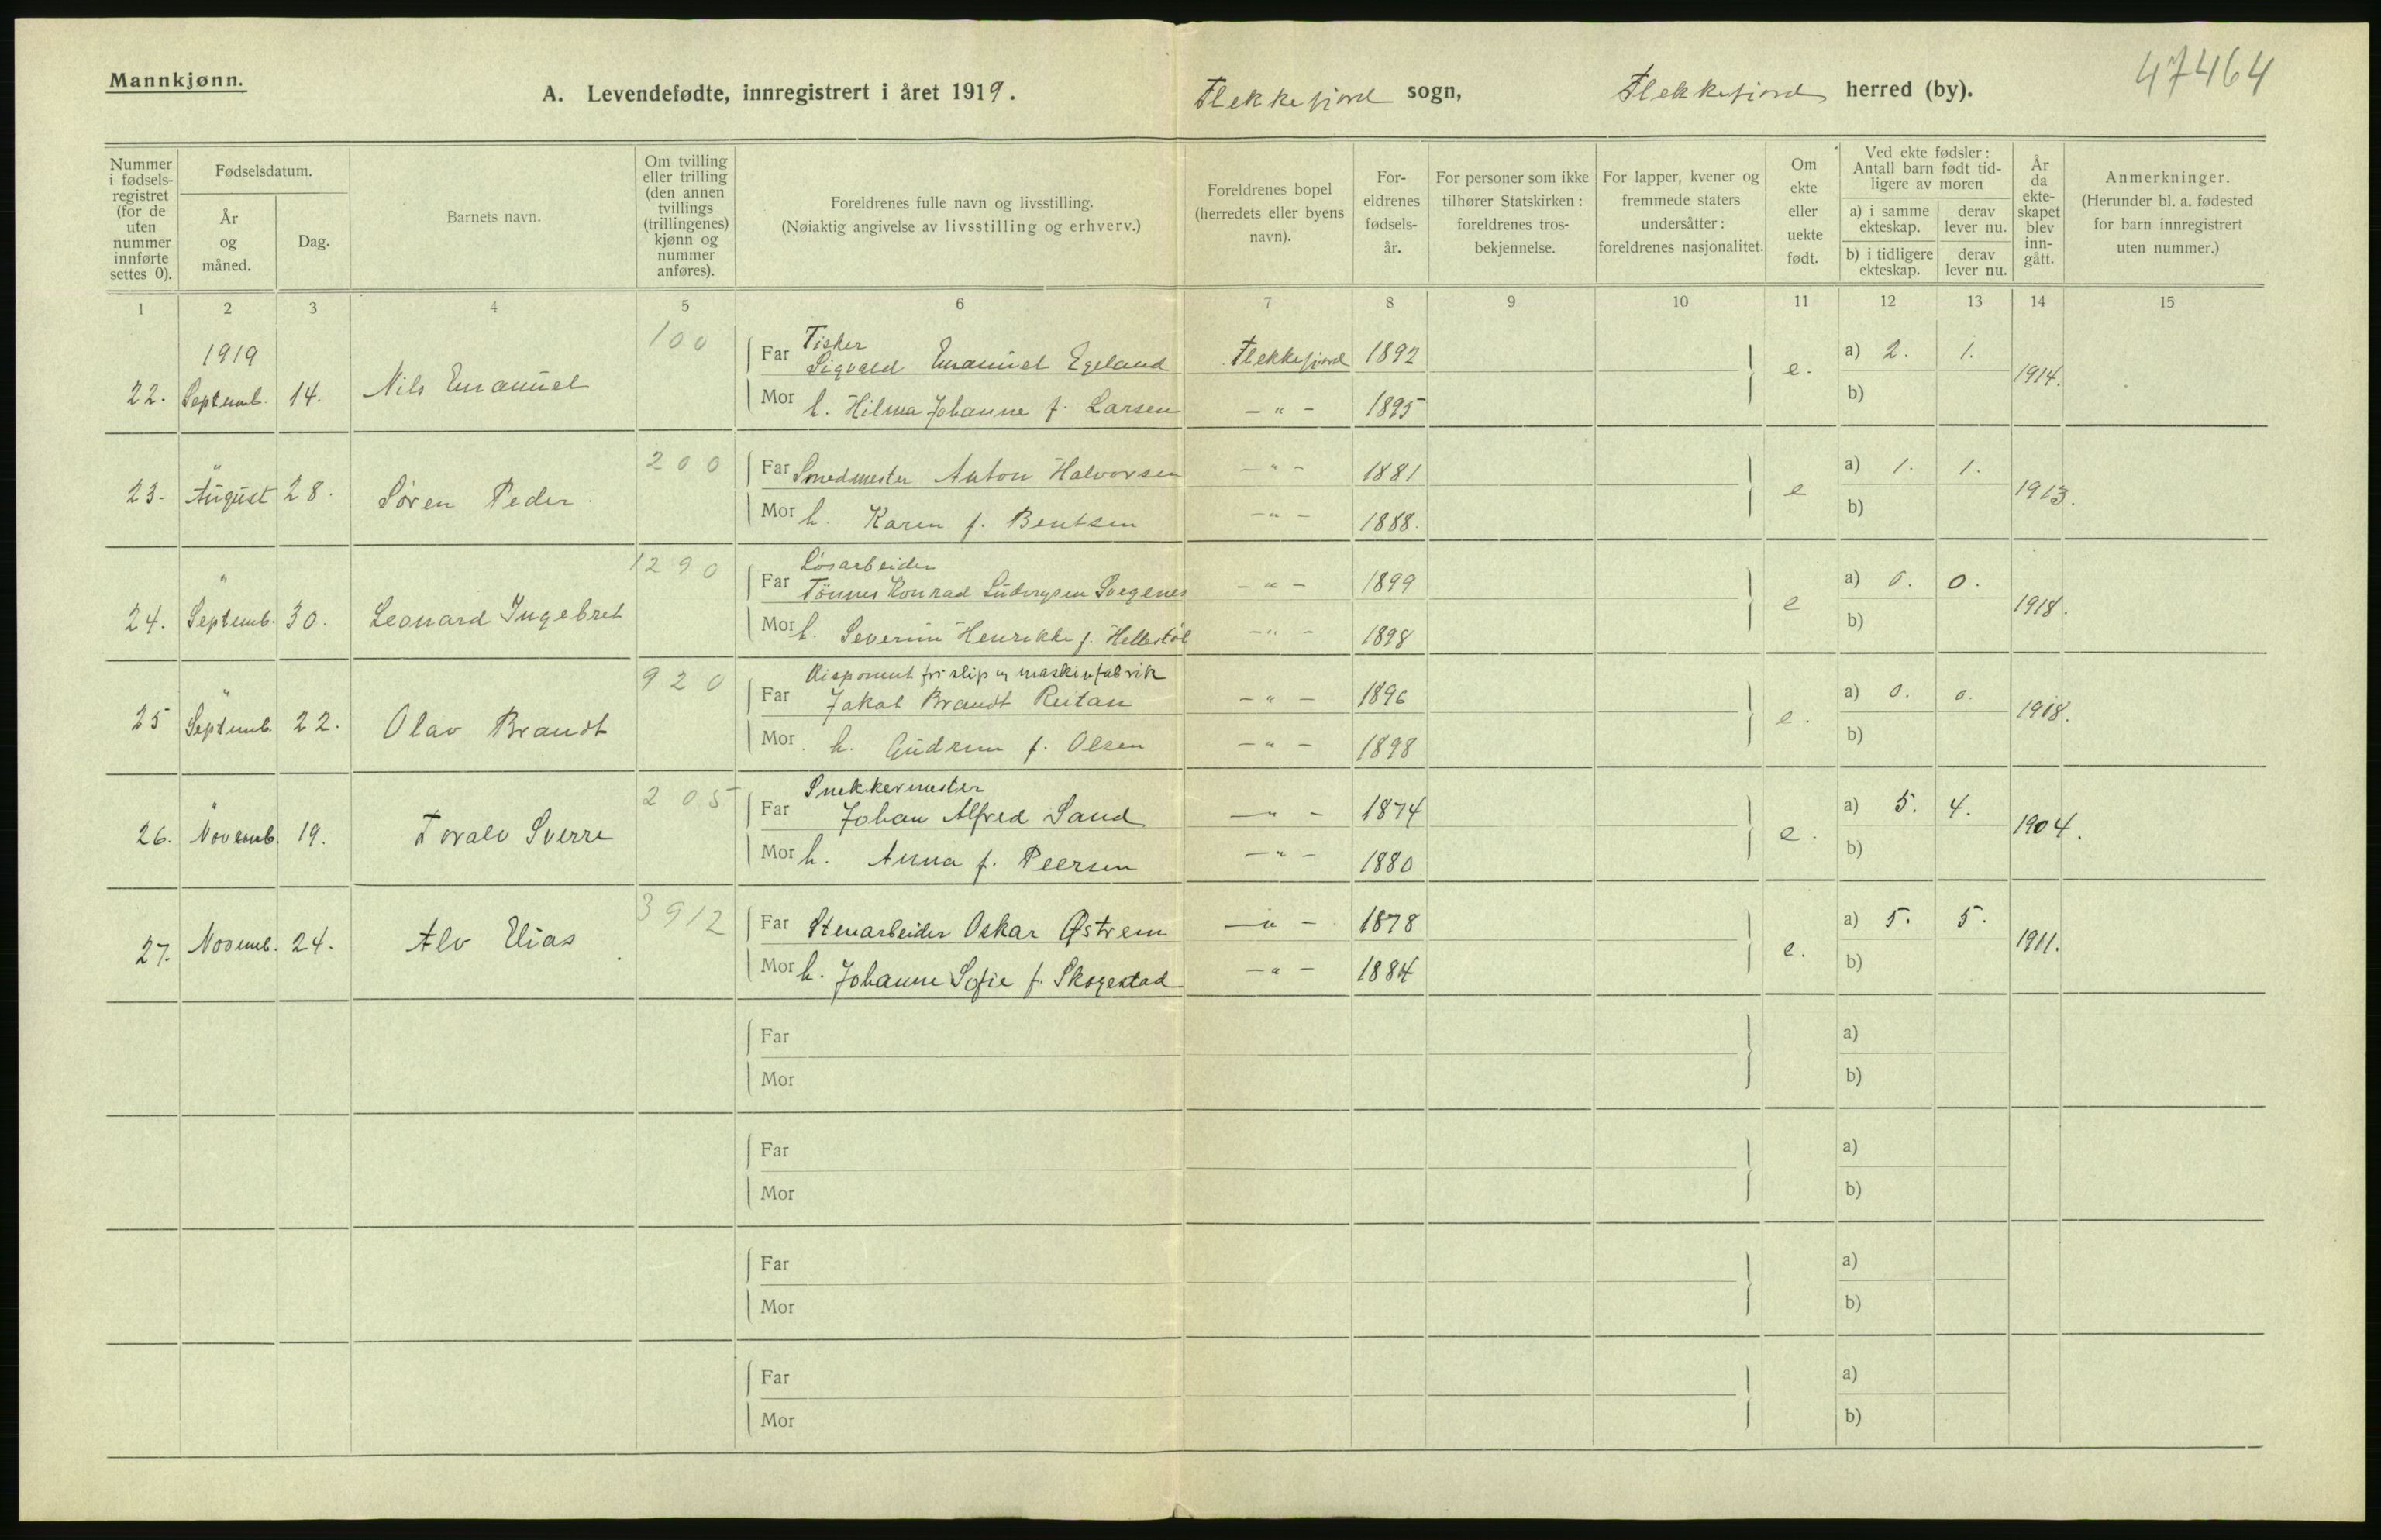 Mannkjønn.
47464
A. Levendefødte, innregistrert i året 1919. Flekkefjord sogn, Flekkefjord herred (by).
Nummer i fødsels- registret (for de uten nummer innførte settes 0).
Fødselsdatum.
År og måned.
Dag.
Barnets navn.
Om tvilling eller trilling (den annen tvillings (trillingenes) kjønn og nummer anføres).
Foreldrenes fulle navn og livsstilling.
(Nøiaktig angivelse av livsstilling og erhverv.)
Foreldrenes bopel (herredets eller byens navn).
For- eldrenes fødsels- år.
For personer som ikke tilhører Statskirken: foreldrenes tros- bekjennelse.
For lapper, kvener og fremmede staters undersåtter: foreldrenes nasjonalitet.
Om ekte eller uekte født.
Ved ekte fødsler: Antall barn født tid- ligere av moren
a) i samme ekteskap.
derav lever nu.
b) i tidligere ekteskap.
derav lever nu.
År da ekte- skapet blev inn- gått.
Anmerkninger.
(Herunder bl. a. fødested for barn innregistrert uten nummer.)
1 2 3 4 5 6 7 8 9 10 11 12 13 14 15
1919
100
Fisker
Far Sigvald Emanuel Egeland Flekkefjord 1892 a) 2. 1.
22. Septemb. 14. Nils Emanuel e. 1914.
Mor h. Hilma Johanne f. Larsen - " - 1895 b)
" 200
Far Smedmester Anton Halvorsen - " - 1881 a) 1. 1.
23. August 28. Søren Peder. e 1913.
Mor h. Karen f. Bentsen - " - 1888. b)
" 1290
Løsarbeider
Far Tönnes Konrad Sindregsen - " - 1899 a) 0. 0.
24. Septemb. 30. Leonard Ingebret e 1918.
Mor h. Severine Henrikke f. Hellestøl - " - 1898 b)
" 920
Disponent for slip og maskinfabrik
Far Jakob Brandt Reitan - " - 1896 a) 0. 0.
25 Septemb. 22. Olav Brandt e. 1918.
Mor h. Gudrun f. Olsen - " - 1898 b)
" 205
Snekkermester
Far Johan Alfred Sand - " - 1874 a) 5. 4.
26. Novemb. 19. Toralv Sverre e. 1904.
Mor h. Anna f. Peersen - " - 1880 b)
3912
Far Stenarbeider Oskar Østrem - " - 1878 a) 5. 5.
27. Novemb. 24. Alv Elias e. 1911.
Mor h. Johanne Sofie f. Skogestad - " - 1884 b)
Far a)
Mor b)
Far a)
Mor b)
Far a)
Mor b)
Far a)
Mor b)